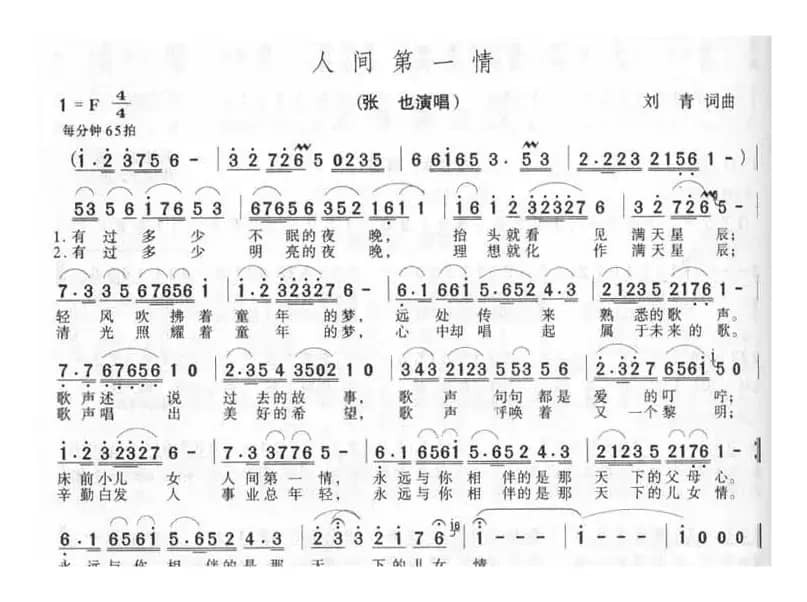 人间第一情
1=F 4/4
(张 也演唱)
刘 青 词曲
每分钟65拍
(1·2 3756 - | 32726 5 0235 | 6 6165 3· 53 | 2·223 2156 1 -)
53 56 176 53 | 67656 356352 161 1 | 1612 323327 6 | 32726 5 -
1.有过多少 不眠的夜晚, 抬头就看 见满天星辰;
2.有过多少 明亮的夜晚, 理想就化 作满天星辰;
7·3 35 67656 1 | 1·2 32327 6 - | 6·1 6651 5·652 4·3 | 2123 52 2176 1 -
轻风吹拂着童年的梦, 远处传来熟悉的歌声。
清光照耀着童年的梦, 心中却唱起属于未来的歌。
7·7 67656 1 0 | 2·354 3502 1 0 | 343 2123 553 5 | 2327 6561 5 0
歌声述说过去的故事, 歌声句句都是爱的叮咛;
歌声唱出美好的希望, 歌声呼唤着又一个黎明;
1·2 32327 6 - | 7·3 33776 5 - | 6·1 6561 5·652 4·3 | 2123 52 2176 1 -
床前小儿女人间第一情, 永远与你相伴的是那天下的父母心。
辛勤白发人事业总年轻, 永远与你相伴的是那天下的儿女情。
6·1 6561 5·652 4·3 | 2123 3 - | 2·321 2 17 6 | 1 - - - | 1 - - - | 1 0 0 0
永远与你相伴的是那天下的儿女情